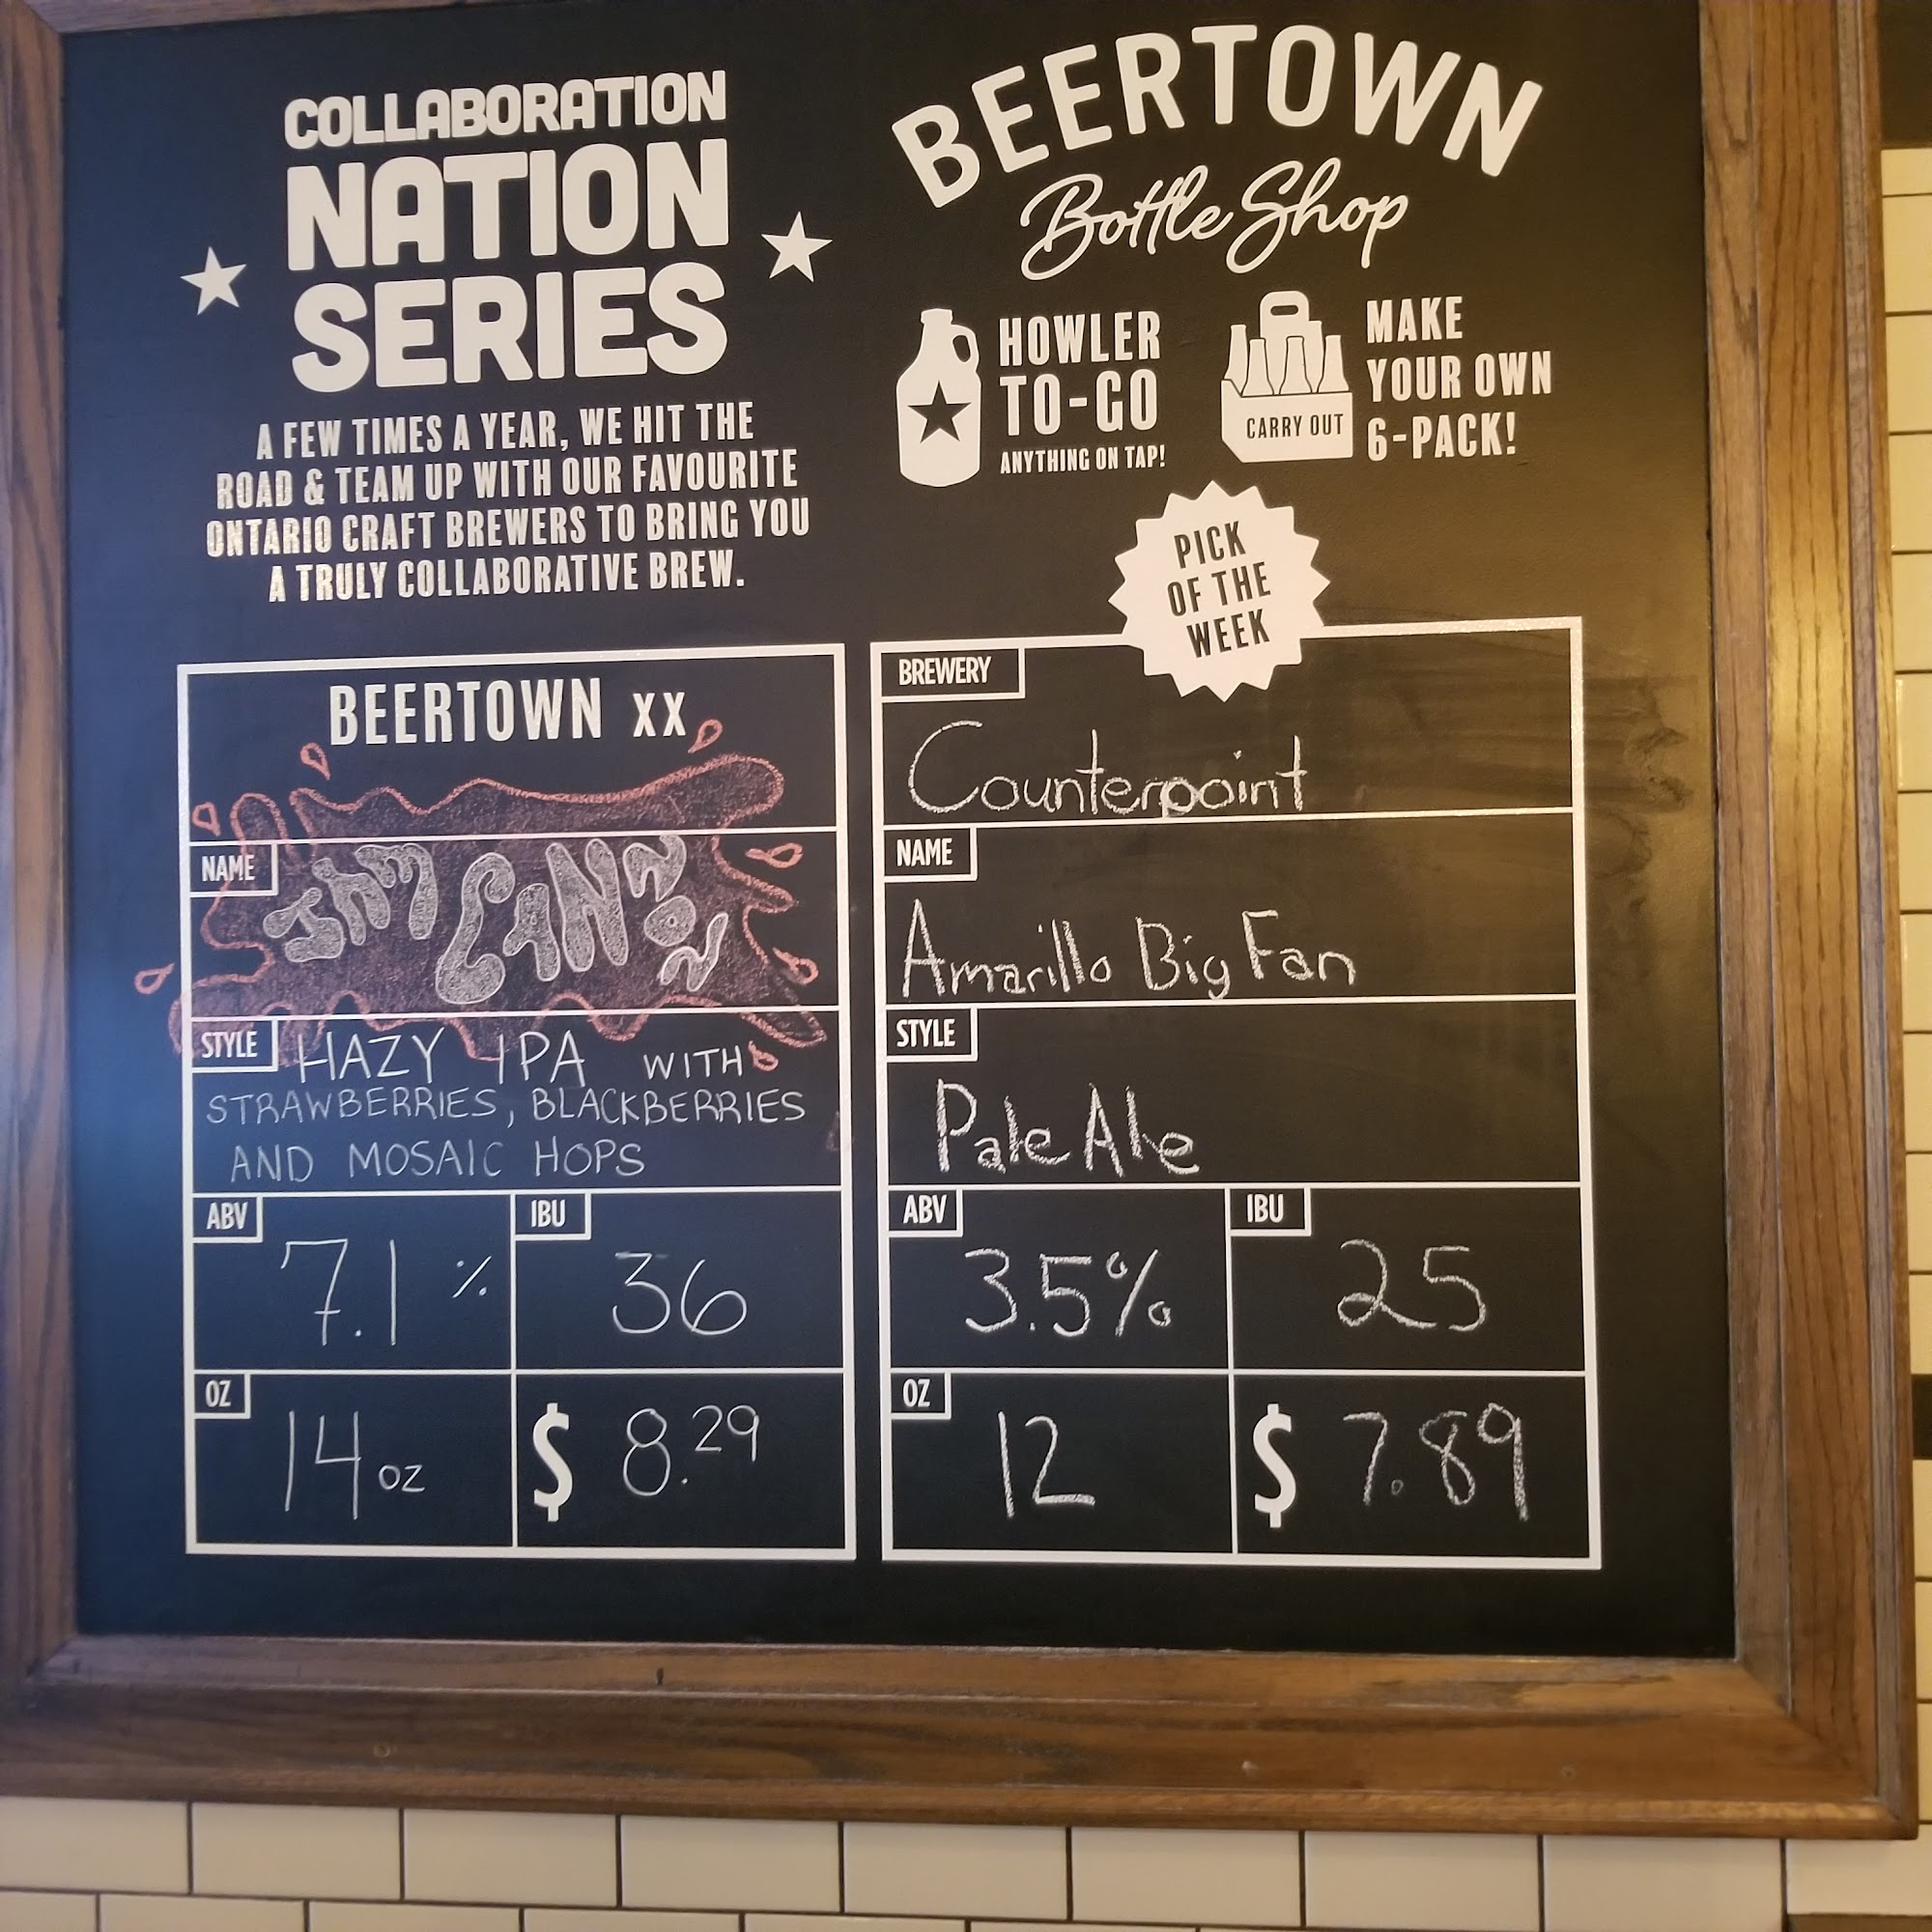 COLLABORATION
NATION
SERIES
A FEW TIMES A YEAR, WE HIT THE
ROAD & TEAM UP WITH OUR FAVOURITE
ONTARIO CRAFT BREWERS TO BRING YOU
A TRULY COLLABORATIVE BREW.
BEERTOWN XX
NAME
JAM CANNON
STYLE
HAZY IPA WITH
STRAWBERRIES, BLACKBERRIES
AND MOSAIC HOPS
ABV
7.1 %
IBU
36
OZ
14 OZ
$ 8.29
BEERTOWN
Bottle Shop
HOWLER
TO-GO
ANYTHING ON TAP!
CARRY OUT
MAKE
YOUR OWN
6-PACK!
PICK
OF THE
WEEK
BREWERY
Counterpoint
NAME
Amarillo Big Fan
STYLE
Pale Ale
ABV
3.5%
IBU
25
OZ
12
$ 7.89